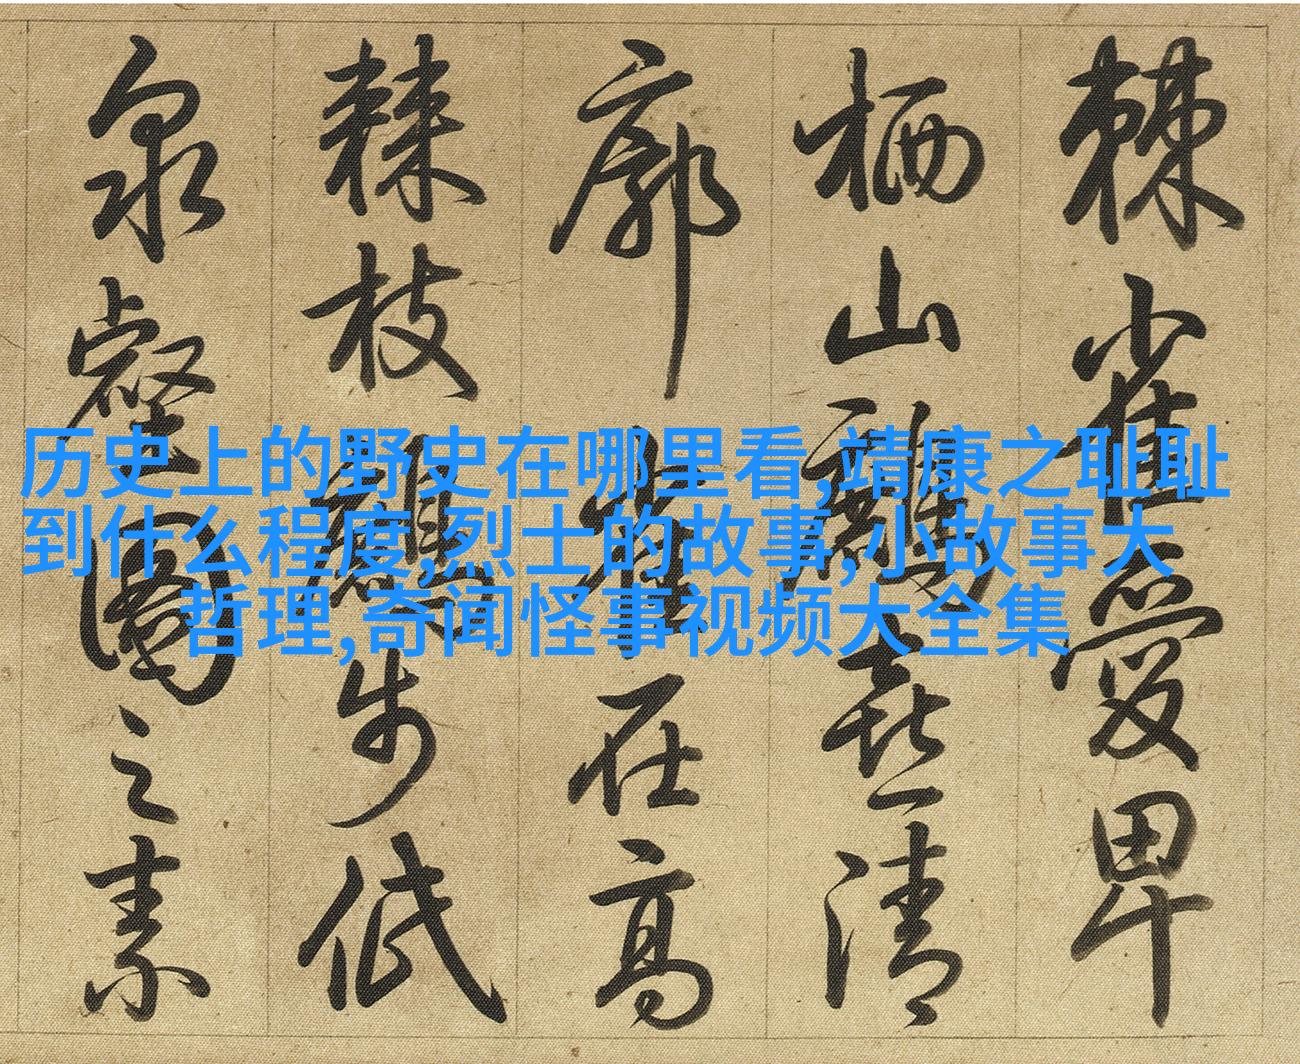 棘雀愛卑
栖山鷓喜清
廓雀在高
棘枝鷓步低
泉壑圖之素
历史上的野史在哪里看,靖康之耻耻
到什么程度,烈士的故事,小故事大
哲理,奇闻怪事视频大全集